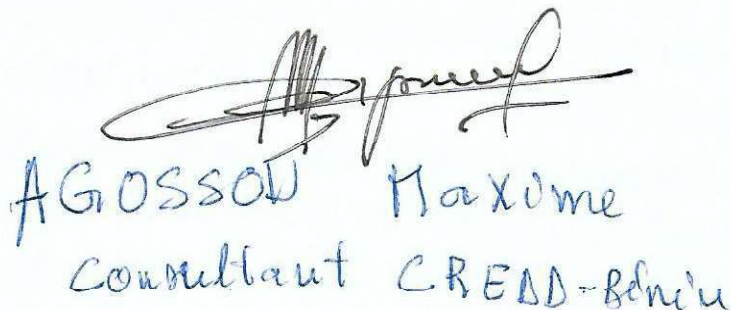 AGOSSOU Maxime
Consultant CREDD-Bénin